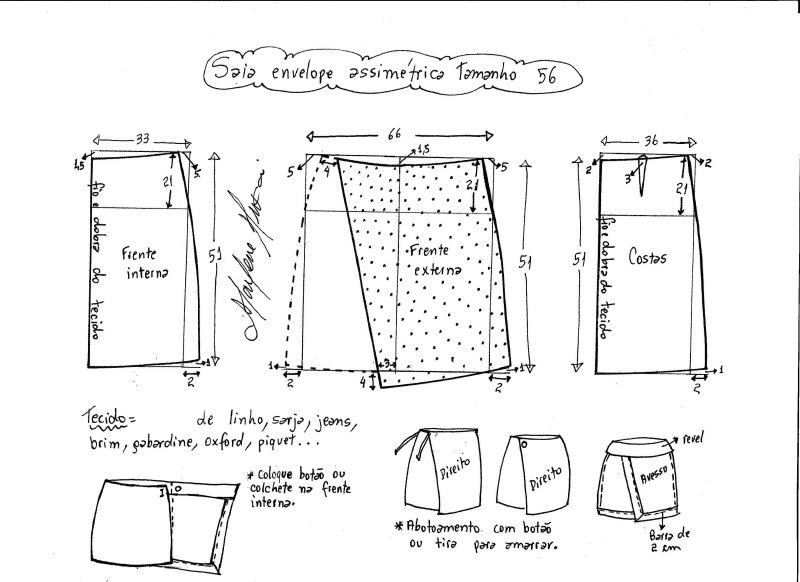 Saia envelope assimétrica Tamanho 56
33
1,5
5
21
fio e dobra do tecido
Frente
interna
51
1
2
Marlene Mukai.
66
1,5
5
4
5
21
Frente
externa
51
1
2
3
4
1
2
36
2
2
3
21
fio e dobra do tecido
Costas
51
1
2
Tecido= de linho, sarja, jeans,
brim, gabardine, oxford, piquet...
* Coloque botão ou
colchete na frente
interna.
Direito
Direito
* Abotoamento com botão
ou tira para amarrar.
revel
Avesso
Barra de
2 cm